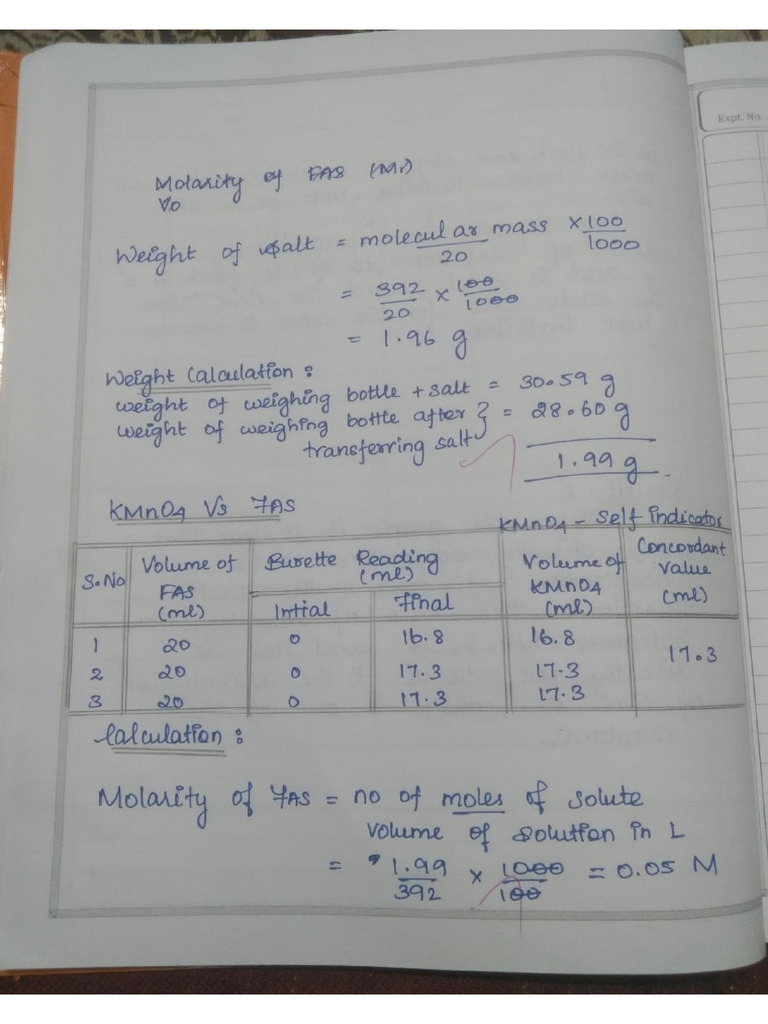 Expt. No.
Molarity of FAS (M1)
Vo
Weight of salt = molecular mass / 20 × 100 / 1000
= 392 / 20 × 100 / 1000
= 1.96 g
Weight Calculation :
weight of weighing bottle + salt = 30.59 g
weight of weighing bottle after } = 28.60 g
transferring salt
1.99 g
KMnO4 Vs FAS
KMnO4 - Self indicator
S.No | Volume of FAS (ml) | Burette Reading (ml) | Volume of KMnO4 (ml) | Concordant value (ml)
Intial | Final
1 | 20 | 0 | 16.8 | 16.8
2 | 20 | 0 | 17.3 | 17.3 | 17.3
3 | 20 | 0 | 17.3 | 17.3
Calculation :
Molarity of FAS = no of moles of solute
volume of solution in L
= 1.99 / 392 × 1000 / 100 = 0.05 M